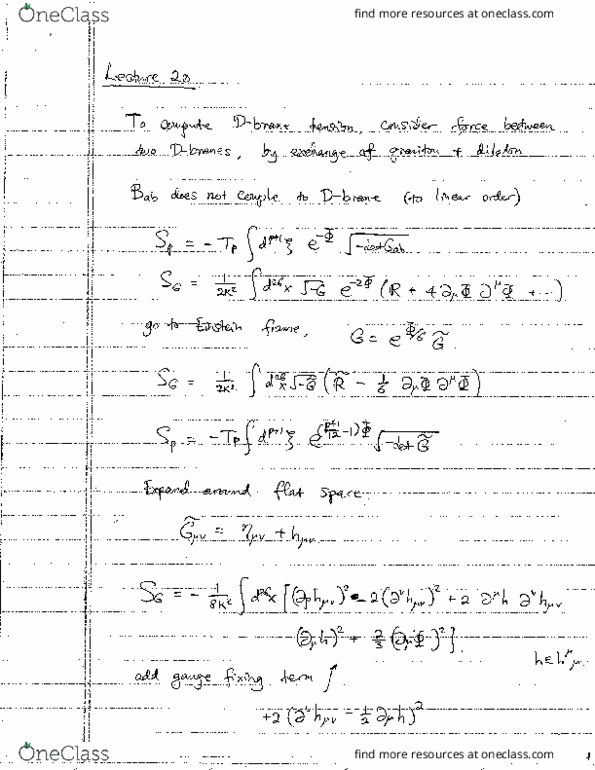 OneClass
find more resources at oneclass.com
Lecture 20
To compute D-brane tension, consider force between
two D-branes, by exchange of graviton + dilaton
Bab does not couple to D-brane (to linear order)
S_p = - T_p ∫ d^{p+1}ξ e^{-Φ} √(-det G_ab)
S_G = 1/2κ² ∫ d^{26}x √-G e^{-2Φ} (R + 4 ∂_μ Φ ∂^μ Φ + ...)
go to Einstein frame, G = e^{Φ/6} G̃
S_G = 1/2κ² ∫ d^{26}x √-G̃ (R̃ - 1/6 ∂_μ Φ ∂^μ Φ)
S_p = - T_p ∫ d^{p+1}ξ e^{(p+1/12 - 1)Φ} √(-det G̃)
Expand around flat space
G̃_μν = η_μν + h_μν
S_G = - 1/8κ² ∫ d^{26}x [(∂_ρ h_μν)² - 2(∂^ν h_μν)² + 2 ∂^μ h ∂^ν h_μν
(∂_μ h)² + 2/3 (∂_μ Φ)²}
h ≡ h^μ_μ
add gauge fixing term ↑
+2 (∂^ν h_μν - 1/2 ∂_μ h)²
OneClass
find more resources at oneclass.com